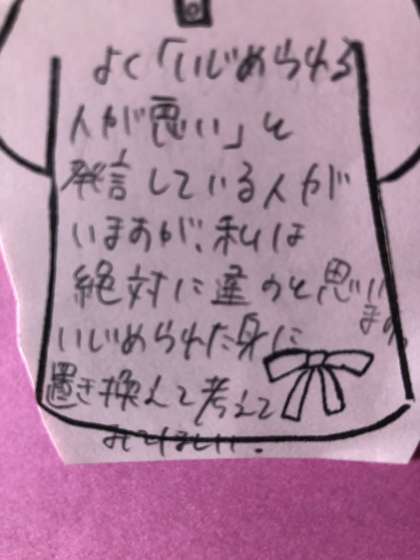 よく「いじめられる
人が悪い」と
発言している人が
いますが、私は
絶対に違うと思い
ます。
いじめられた身に
置き換えて考えて
みてほしい.